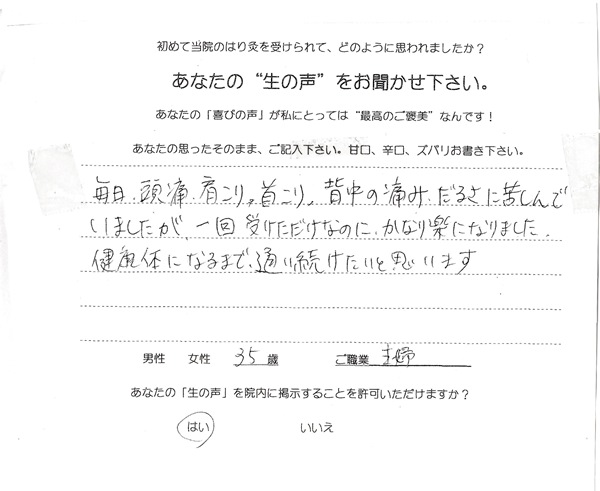 初めて当院のはり灸を受けられて、どのように思われましたか？
あなたの“生の声”をお聞かせ下さい。
あなたの「喜びの声」が私にとっては“最高のご褒美”なんです！
あなたの思ったそのまま、ご記入下さい。甘口、辛口、ズバリお書き下さい。
毎日、頭痛、肩こり、首こり、背中の痛み、だるさに苦しんで
いましたが、一回受けただけなのに、かなり楽になりました。
健康体になるまで、通い続けたいと思います
男性 女性 35歳 ご職業 主婦
あなたの「生の声」を院内に掲示することを許可いただけますか？
はい いいえ